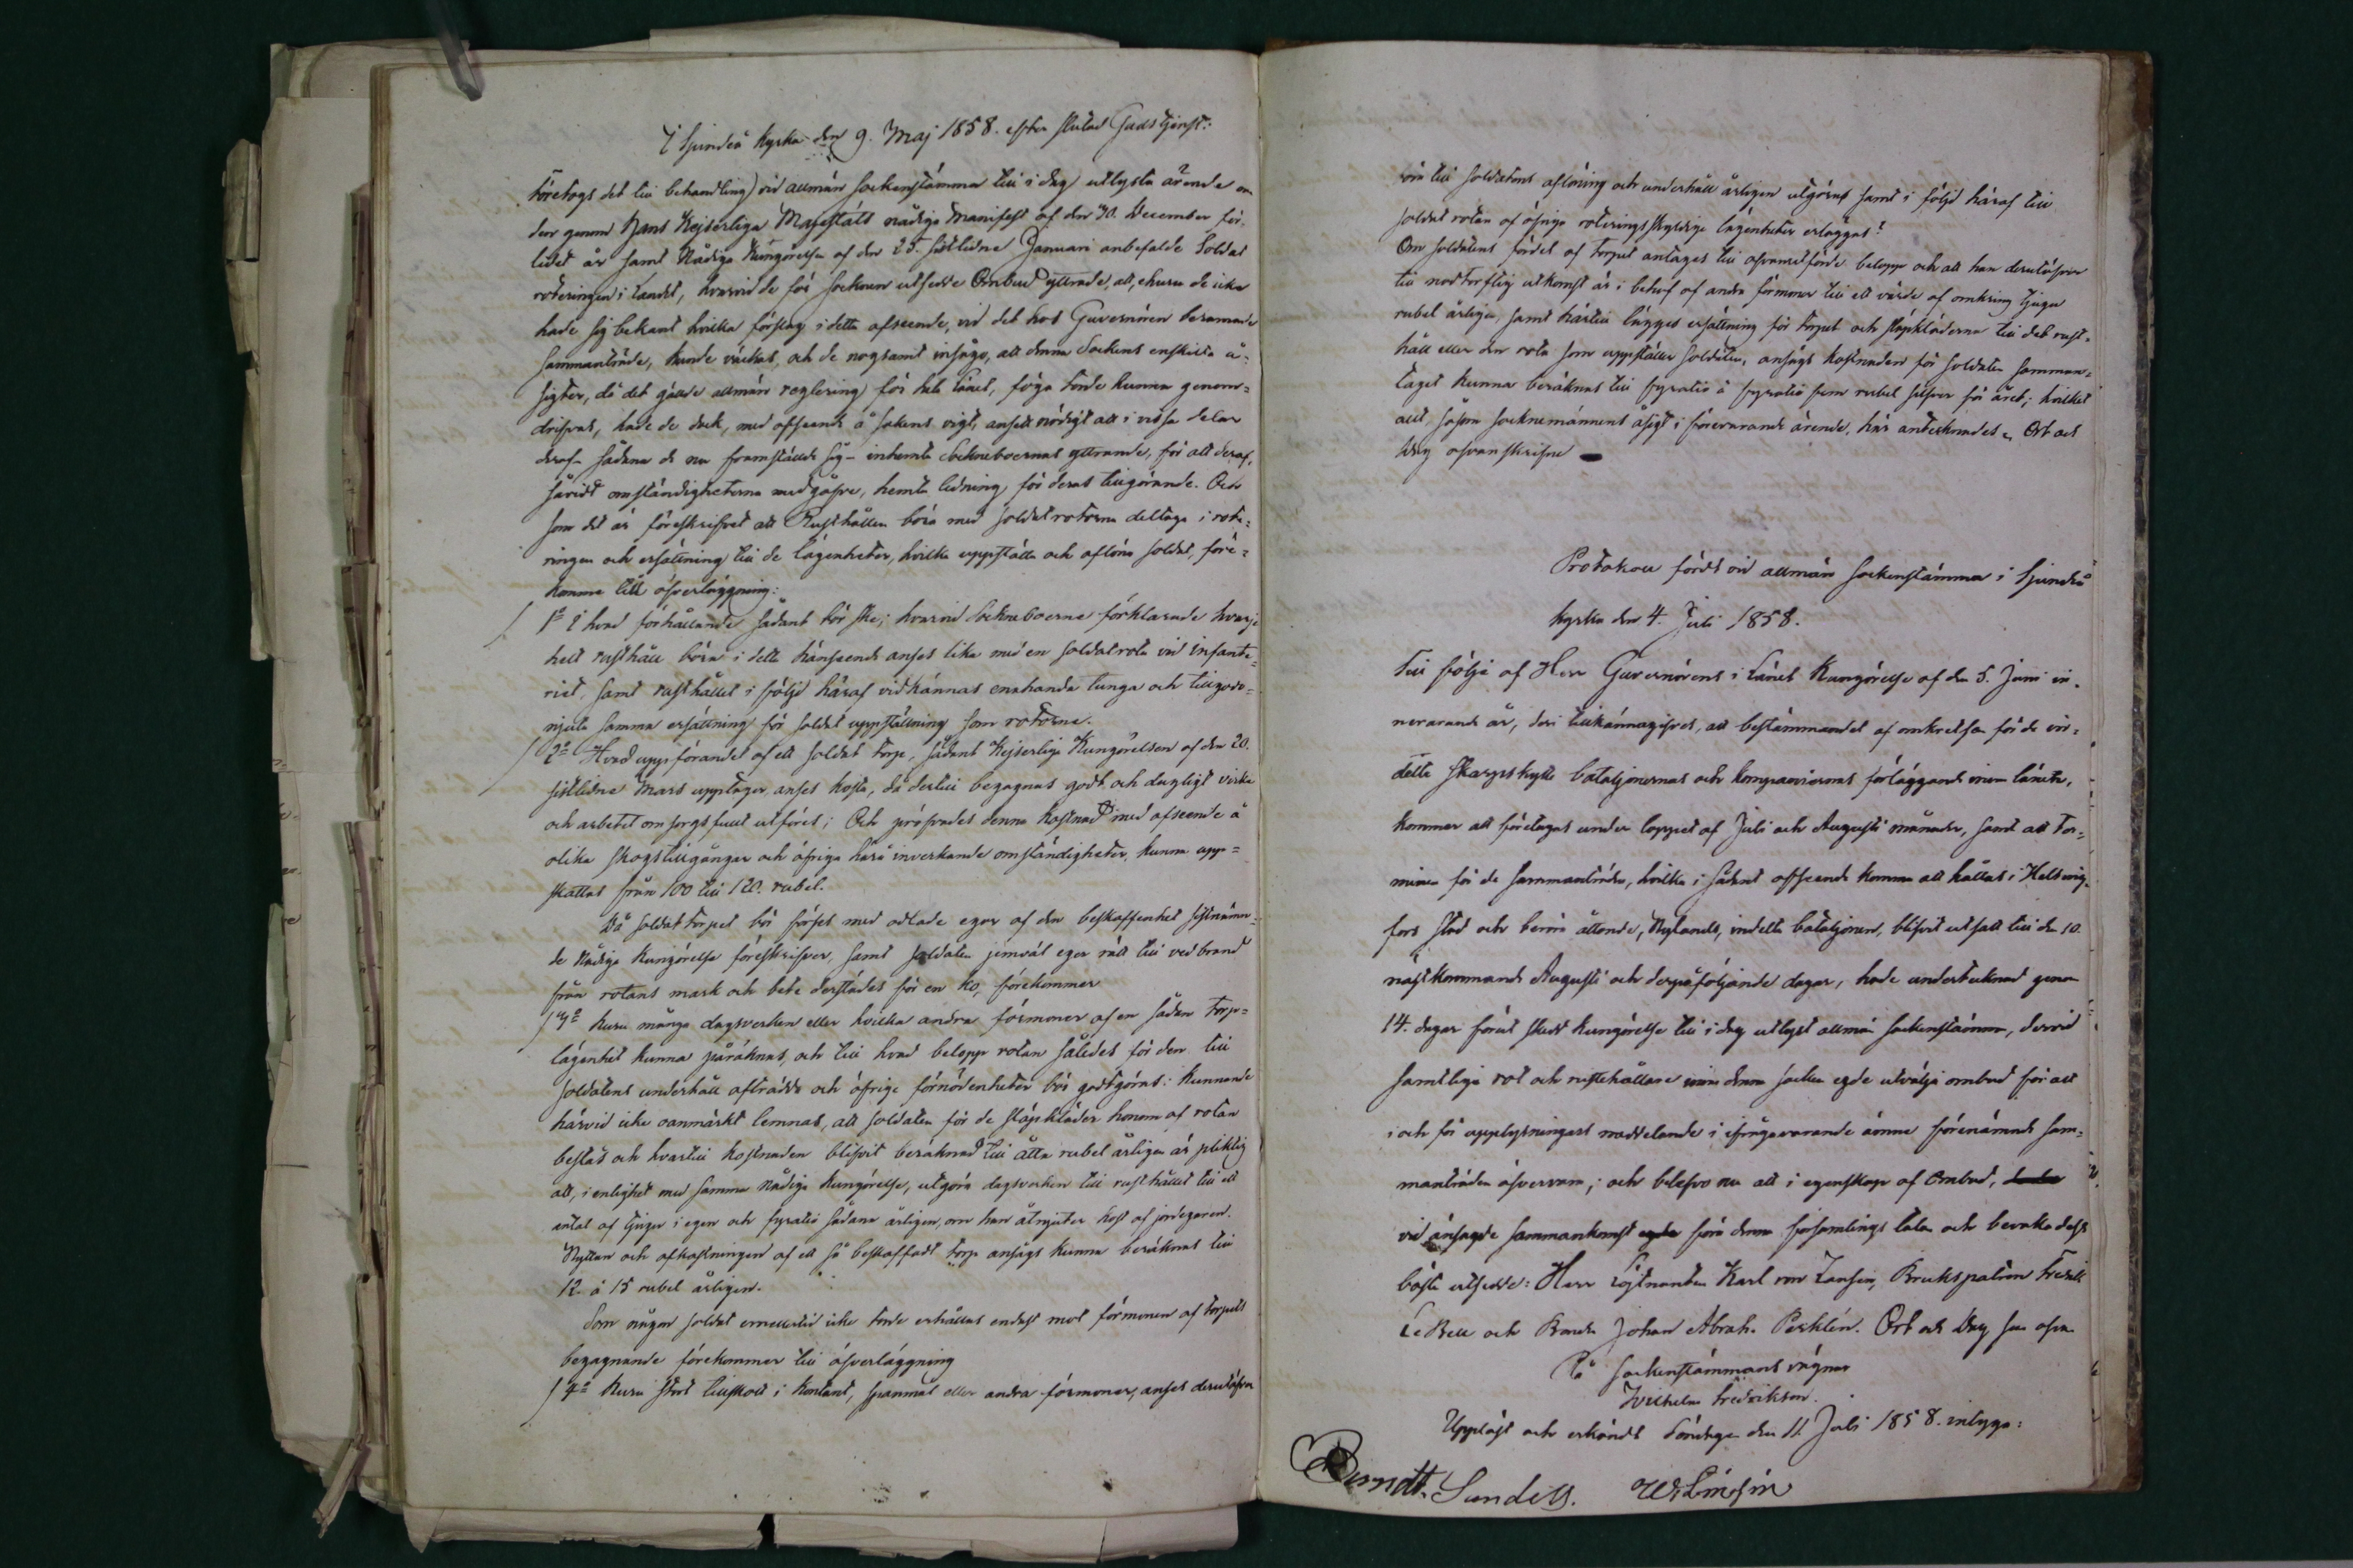 I Sjundeå Kyrka den 9. Maj 1858. efter slutad Gudstjenst:
Företogs det till behandling vid allmän sockenstämma till i dag utlysta ärende om
den genom Hans Kejserliga Majestäts nådiga Manifest af den 30. December för-
lidet år samt Nådiga Kungörelse af den 25. sistlidne Januari anbefalde Soldat
roteringen i landet, hvarvid de för Socknen utsedde Ombud yttrade, att, ehuru de icke
hade sig bekant hvilka förslag i detta afseende, vid det hos Guvernören beramade
sammanträde, kunde väckas, och de nogsamt insågo, att denna Sockens enskilta å-
sigter, då det gällde allmän reglering för hela Länet, föga torde kunna genom-
drifvas, hade de dock, med afseende å sakens vigt, ansett nödigt att i vissa delar
deraf - sådana de nu framställde sig - inhemta Sockneboernas yttrande, för att deraf,
såvidt omständigheterna medgåfve, hemta ledning för deras tillgörande. Och
som det är föreskrifvet att Rusthållen böra med soldatrotorna deltaga i rote-
ringen och ersättning till de lägenheter, hvilka uppställa och aflöna soldat, före-
komme till öfverläggning:
1º I hvad förhållande sådant bör ske; hvarvid Sockneboerne förklarade hvarje
helt rusthåll böra i detta hänseende anses lika med en soldatrota vid infante-
riet, samt rusthållet i följd häraf vidkännas enahanda tunga och tillgodo-
njuta samma ersättning för soldat uppställning som rotorna.
2º Hvad uppförandet af ett soldat torp, sådant Kejserliga Kungörelsen af den 20.
sistlidne Mars upptager, anses kosta, då dertill begagnas godt och dugligt virke
och arbetet omsorgsfullt utföres; Och pröfvades denna kostnad med afseende å
olika skogstillgångar och öfriga härå inverkande omständigheter, kunna upp-
skattas från 100 till 120. rubel.
Då soldat torpet bör förses med odlade egor af den beskaffenhet sistnämn-
de Nådiga Kungörelse föreskrifver, samt soldaten jemväl eger rätt till vedbrand
från rotans mark och bete derstädes för en ko, förekommer
3º Huru många dagsverken eller hvilka andra förmoner af en sådan torp-
lägenhet kunna påräknas, och till hvad belopp rotan således för den till
soldatens underhåll afträdda och öfrige förnödenheter bör godtgöras: kunnande
härvid icke oanmärkt lemnas, att soldaten för de släpkläder honom af rotan
bestås och hvartill kostnaden blifvit beräknad till åtta rubel årligen är pliktig
att, i enlighet med samma Nådiga Kungörelse, utgöra dagsverken till rusthållet till ett
antal af tjugu i egen och fyratio sådana årligen, om han åtnjuter kost af jordegaren.
Nyttan och afkastningen af ett så beskaffadt torp ansågs kunna beräknas till
12 à 15 rubel årligen.
Som någon soldat emellertid icke torde erhållas endast mot förmonen af torpets
begagnande förekommer till öfverläggning
4º Huru stort tillskott i kontant, spannmål eller andra förmoner, anses derutöfver
böra till soldatens aflöning och underhåll årligen utgöras samt i följd häraf till
soldatrotan af öfriga roteringsskyldige lägenheter erläggas?
Om soldatens fördel af torpet antages till ofvanutförde belopp och att han derutöfver
till nödtorftig utkomst är i behof af andra förmoner till ett värde af omkring tjugu
rubel årligen, samt härtill lägges ersättning för torpet och släpkläderna till det rust-
håll eller den rota som uppställer soldaten, ansågs kostnaden för soldaten samman-
taget kunna beräknas till fyratio à fyratio fem rubel silfver för året; hvilket
allt, såsom Socknemännens åsigt i förevarande ärende, här antecknades. Ort och
dag ofvanskrifne
Protokoll fördt vid allmän Sockenstämma i Sjundeå
kyrka den 4. Juli 1858.
Till följe af Herr Guvernörens i Länet Kungörelse af den 5. Juni in-
nevarande år, deri tillkännagifves, att bestämmandet af omkretsen för de in-
delta skarpskytte bataljonernas och kompaniernas förläggande inom länen,
kommer att företagas under loppet af Juli och Augusti månader, samt att ter-
minen för de sammanträden, hvilka i sådant afseende komma att hållas i Helsing-
fors stad och beröra åttonde, Nylands, indelta bataljonen, blifvit utsatt till den 10.
nästkommande Augusti och derpåföljande dagar, hade undertecknad genom
14. dagar förut skedd kungörelse till i dag utlyst allmän Sockenstämma, dervid
samtliga rot och rustehållare inom denna socken egde utvälja ombud för att
i och för upplysningars meddelande i ifrågavarande ämne förenämnde sam-
manträden öfvervara; och blefvo nu att i egenskap af Ombud,
vid ansagde sammankomst föra denna församlings talan och bevaka dess
bästa utsedde: Herr Löjtnanten Karl von Zansen, Brukspatron Fredrik
LeBell och Bonden Johan Abrah. Perklén. Ort och Dag som ofvan
På Sockenstämmans vägnar
Wilhelm Fredrikson.
Uppläst och erkändt Söndagen den 11. Juli 1858. intyga:
Berndt. Sundell. W. Limón